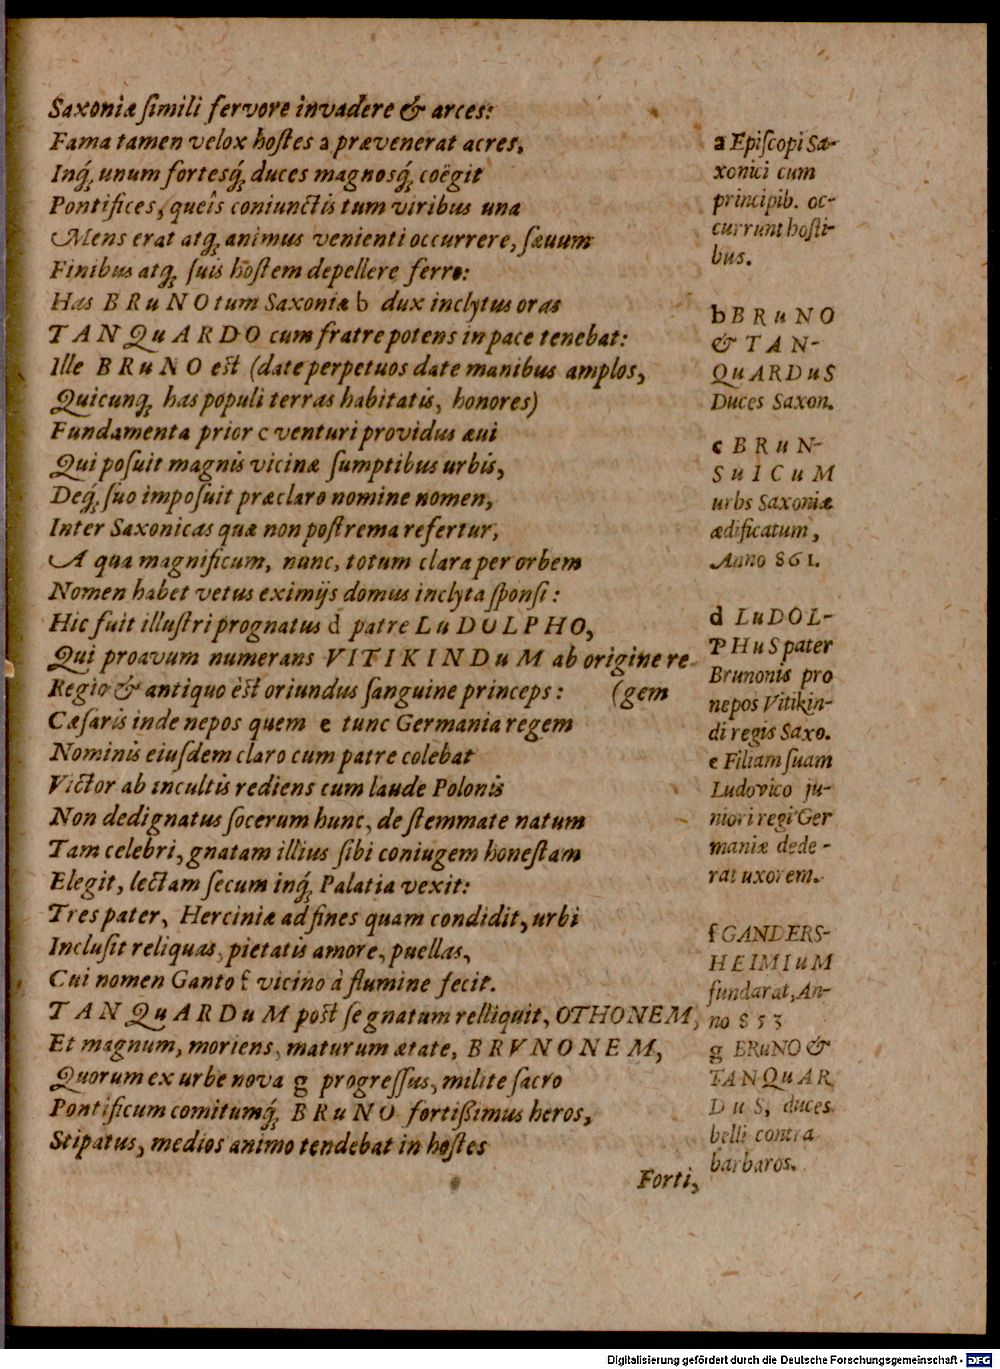 Saxoniæ ſimili fervore invadere & arces:
Fama tamen velox hoſtes a prævenerat acres,
Inq́ȝ unum fortesq́ȝ duces magnosq́ȝ coëgit
Pontifices, queîs coniunctis tum viribus una
Mens erat atq́ȝ animus venienti occurrere, ſæuum
Finibus atq́ȝ ſuis hoſtem depellere ferro:
Has BRuNO tum Saxoniæ b dux inclytus oras
TANQuARDO cum fratre potens in pace tenebat:
Ille BRuNO eſt (date perpetuos date manibus amplos,
Quicunq́ȝ has populi terras habitatis, honores)
Fundamenta prior c venturi providus æui
Qui poſuit magnis vicinæ ſumptibus urbis,
Deq́ȝ ſuo impoſuit præclaro nomine nomen,
Inter Saxonicas quæ non poſtrema refertur,
A qua magnificum, nunc, totum clara per orbem
Nomen habet vetus eximijs domus inclyta ſponſi:
Hic fuit illuſtri prognatus d patre LuDOLPHO,
Qui proavum numerans VITIKINDuM ab origine re-
Regio & antiquo èſt oriundus ſanguine princeps: (gem
Cæſaris inde nepos quem e tunc Germania regem
Nominis eiuſdem claro cum patre colebat
Victor ab incultis rediens cum laude Polonis
Non dedignatus ſocerum hunc, de ſtemmate natum
Tam celebri, gnatam illius ſibi coniugem honeſtam
Elegit, lectam ſecum inq́ȝ Palatia vexit:
Tres pater, Herciniæ ad fines quam condidit, urbi
Incluſit reliquas, pietatis amore, puellas,
Cui nomen Ganto f vicino à flumine fecit.
TANQuARDuM poſt ſe gnatum relliquit, OTHONEM,
Et magnum, moriens, maturum ætate, BRVNONEM,
Quorum ex urbe nova g progreſſus, milite ſacro
Pontificum comitumq́ȝ BRuNO fortiſſimus heros,
Stipatus, medios animo tendebat in hoſtes
Forti,
a Epiſcopi Sa-
xonici cum
principib. oc-
currunt hoſti-
bus.
b BRuNO
& TAN-
QuARDuS
Duces Saxon.
c BRuN-
SuICuM
urbs Saxoniæ
ædificatum,
Anno 861.
d LuDOL-
PHuS pater
Brunonis pro
nepos Vitikin-
di regis Saxo.
e Filiam ſuam
Ludovico ju-
niori regi Ger
maniæ dede-
rat uxorem.
f GANDERS-
HEIMIuM
fundarat, An-
no 853
g BRuNO &
TANQuAR
DuS, duces
belli contra
barbaros.
Digitalisierung gefördert durch die Deutsche Forschungsgemeinschaft - DFG